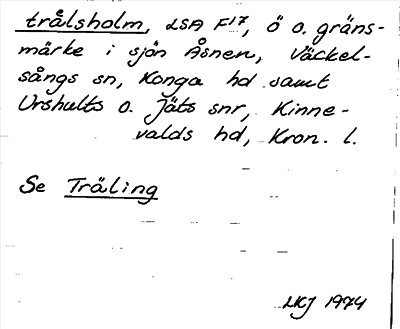 trålsholm, LSA F17, ö o. gräns-
märke i sjön Åsnen, Väckel-
sångs sn, Konga hd samt
Urshults o. Jäts snr, Kinne-
valds hd, Kron. l.
Se Träling
LKJ 1974